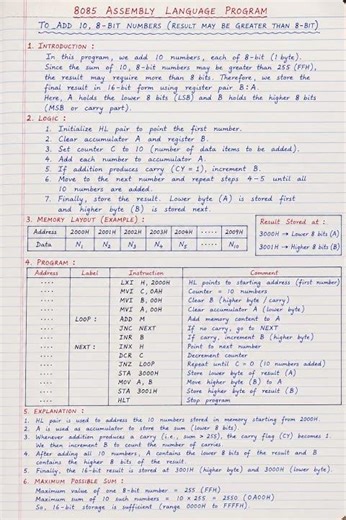 8085 ASSEMBLY LANGUAGE PROGRAM
TO ADD 10, 8-BIT NUMBERS (RESULT MAY BE GREATER THAN 8-BIT)
1. INTRODUCTION :
In this program, we add 10 numbers, each of 8-bit (1 byte).
Since the sum of 10, 8-bit numbers may be greater than 255 (FFH),
the result may require more than 8 bits. Therefore, we store the
final result in 16-bit form using register pair B:A.
Here, A holds the lower 8 bits (LSB) and B holds the higher 8 bits
(MSB or carry part).
2. LOGIC :
1. Initialize HL pair to point the first number.
2. Clear accumulator A and register B.
3. Set counter C to 10 (number of data items to be added).
4. Add each number to accumulator A.
5. If addition produces carry (CY = 1), increment B.
6. Move to the next number and repeat steps 4-5 until all
10 numbers are added.
7. Finally, store the result. Lower byte (A) is stored first
and higher byte (B) is stored next.
3. MEMORY LAYOUT (EXAMPLE) :
Address 2000H 2001H 2002H 2003H 2004H ..... 2009H
Data N1 N2 N3 N4 N5 ..... N10
Result Stored at :
3000H → Lower 8 bits (A)
3001H → Higher 8 bits (B)
4. PROGRAM :
Address Label Instruction Comment
.... LXI H, 2000H HL points to starting address (first number)
.... MVI C, 0AH Counter = 10 numbers
.... MVI B, 00H Clear B (higher byte / carry)
.... MVI A, 00H Clear accumulator A (lower byte)
.... LOOP : ADD M Add memory content to A
.... JNC NEXT If no carry, go to NEXT
.... INR B If carry, increment B (higher byte)
.... NEXT : INX H Point to next number
.... DCR C Decrement counter
.... JNZ LOOP Repeat until C = 0 (10 numbers added)
.... STA 3000H Store lower byte of result (A)
.... MOV A, B Move higher byte (B) to A
.... STA 3001H Store higher byte of result (B)
.... HLT Stop program
5. EXPLANATION :
1. HL pair is used to address the 10 numbers stored in memory starting from 2000H.
2. A is used as accumulator to store the sum (lower 8 bits)
3. Whenever addition produces a carry (i.e., sum > 255), the carry flag (CY) becomes 1.
We then increment B to count the number of carries.
4. After adding all 10 numbers, A contains the lower 8 bits of the result and B
contains the higher 8 bits of the result.
5. Finally, the 16-bit result is stored at 3001H (higher byte) and 3000H (lower byte).
6. MAXIMUM POSSIBLE SUM :
Maximum value of one 8-bit number = 255 (FFH)
Maximum sum of 10 such numbers = 10 × 255 = 2550 (0A00H)
So, 16-bit storage is sufficient (range 0000H to FFFFH).